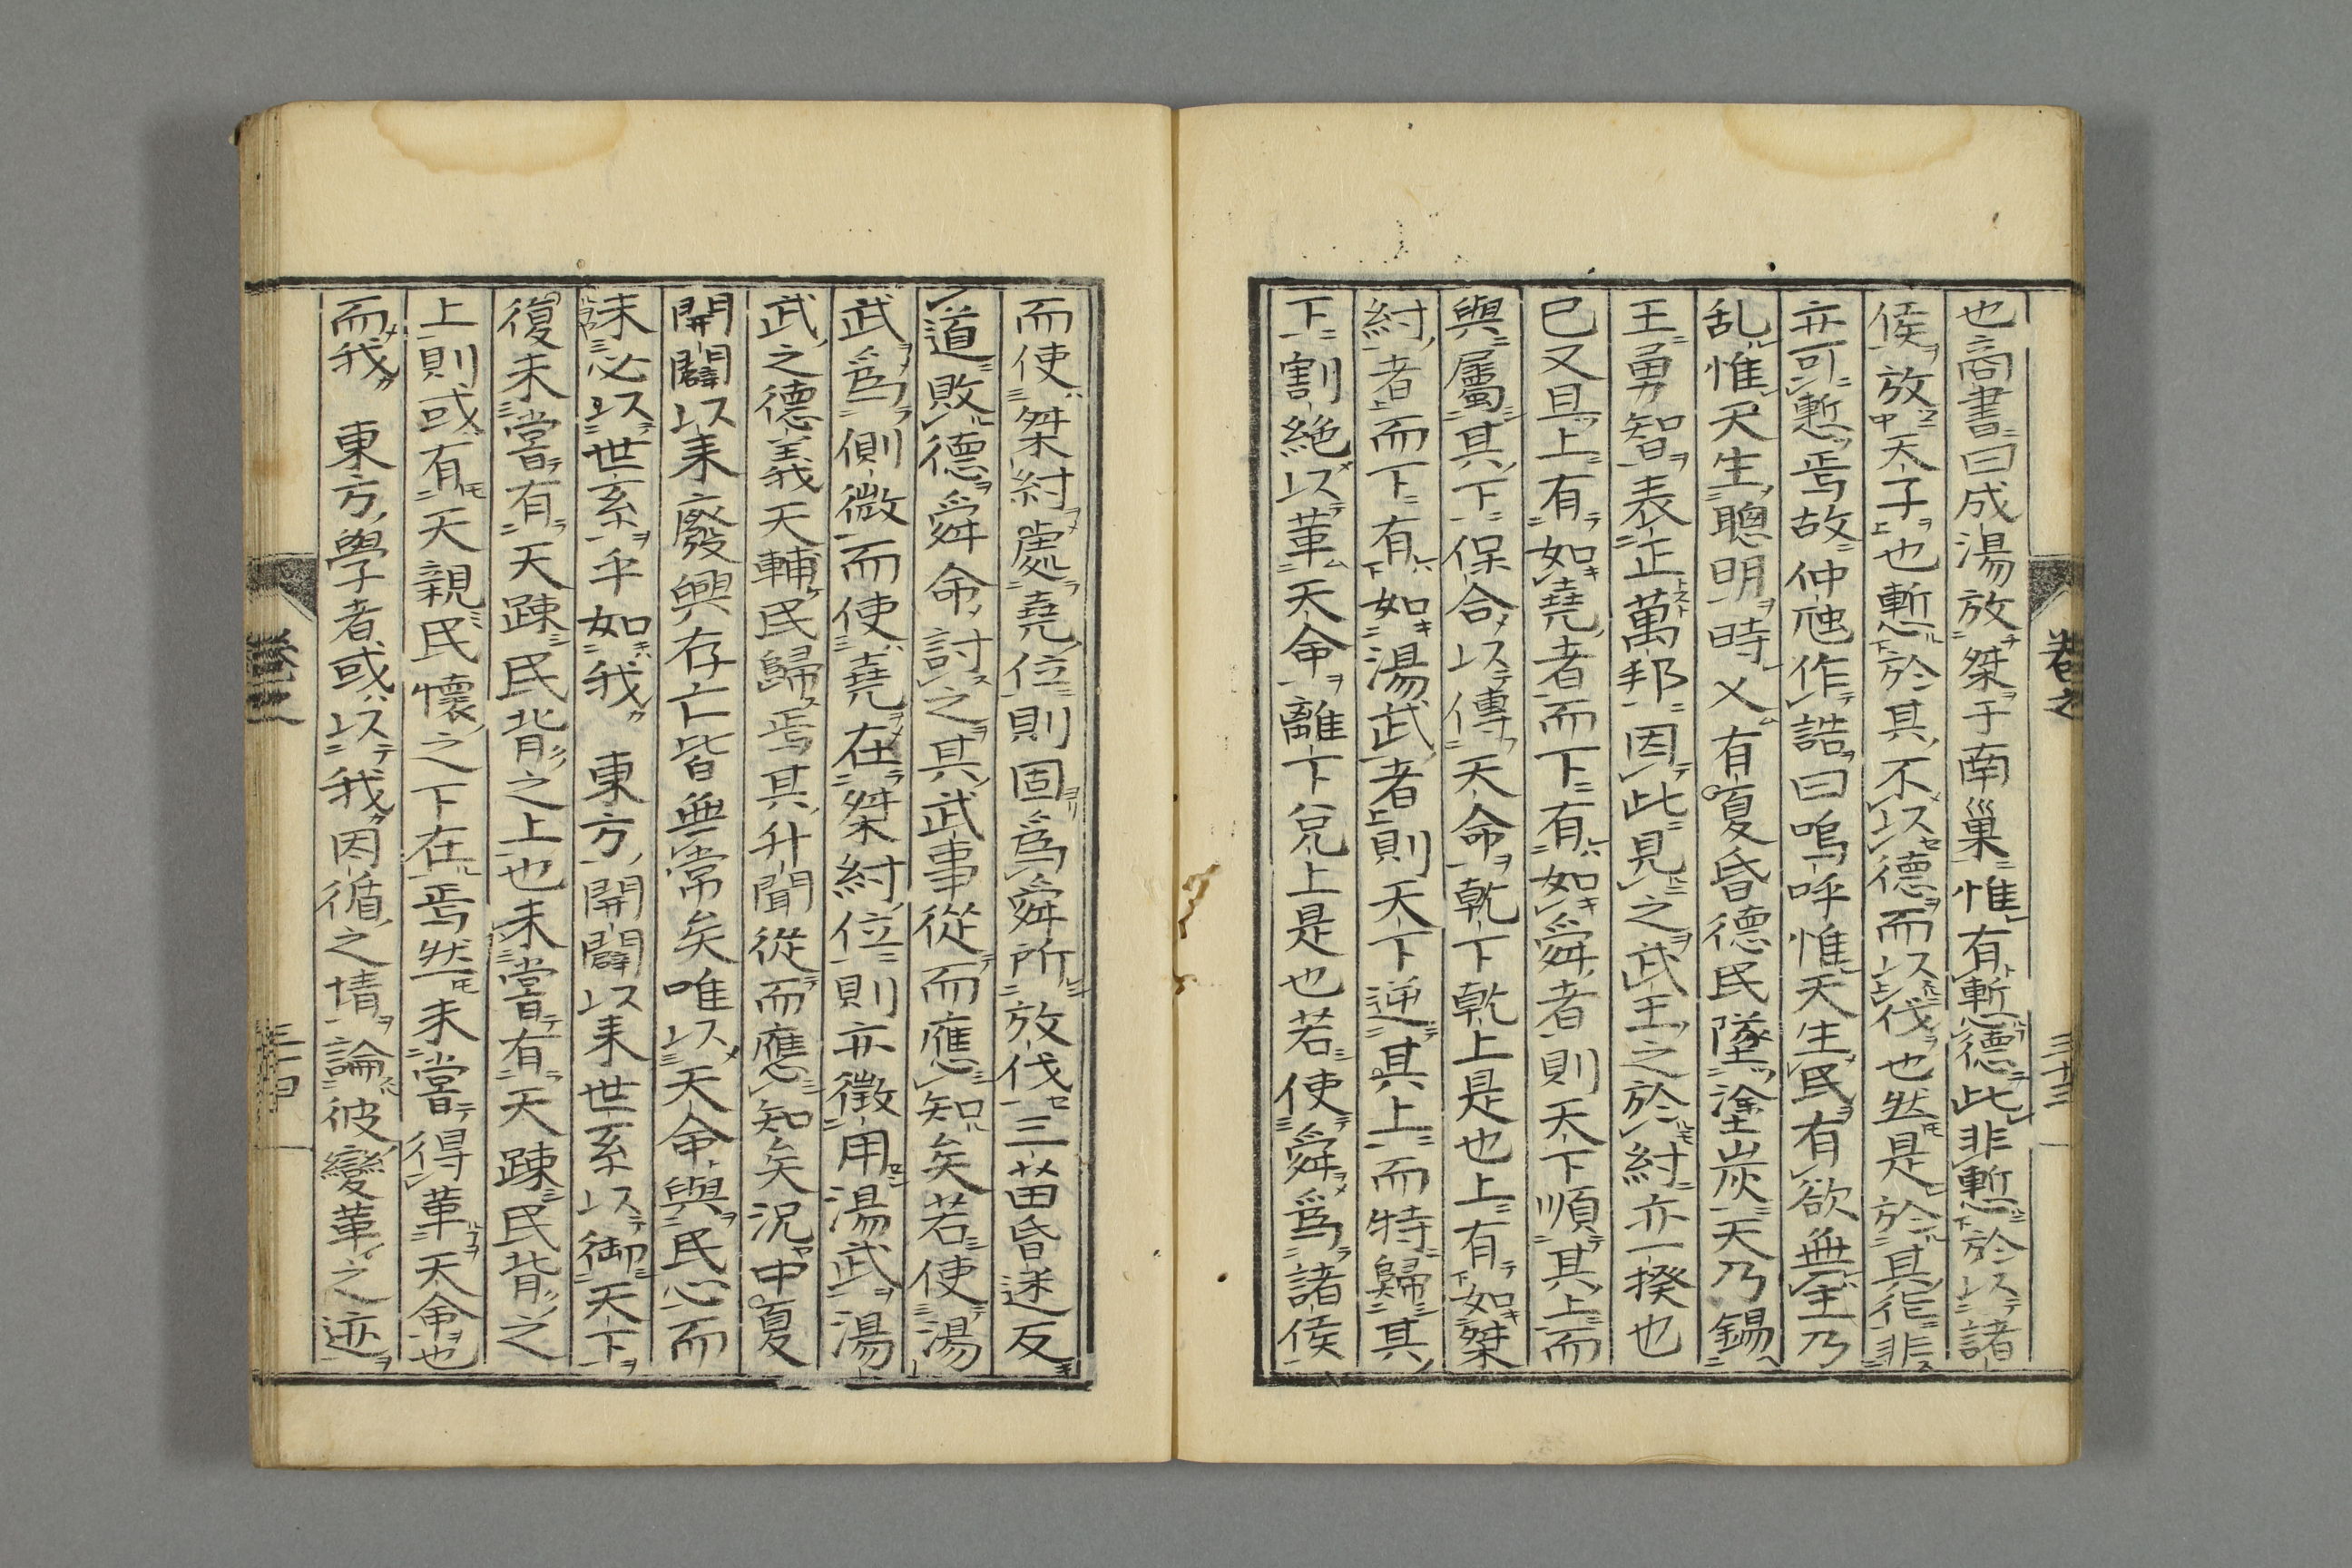 也商書曰成湯放桀于南巢惟有慙德此非慙於以諸
侯放天子也慙於其不以德而以伐也然是於其作非
亦可慙焉故仲虺作誥曰嗚呼惟天生民有欲無主乃
乱惟天生聰明時乂有夏昏德民墜塗炭天乃錫
王勇智表正萬邦因此見之武王之於紂亦一揆也
已又且上有如堯者而下有如舜者則天下順其上而
與屬其下保合以傳天命乾下乾上是也上有如桀
紂者而下有如湯武者則天下逆其上而特歸其
下割絶以革天命離下兌上是也若使舜爲諸侯
卷之
三十三
而使桀紂處堯位則固爲舜所放伐三苗昏迷反
道敗德舜命討之其武事從而應知矣若使湯
武爲側微而使堯在桀紂位則亦徵用湯武湯
武之德義天輔民歸焉其升聞從而應知矣況中夏
開闢以来廢興存亡皆無常矣唯以天命與民心而
未必以世系乎如我 東方開闢以来世系以御天下
復未嘗有天踈民背之上也未嘗有天踈民背之
上則或有天親民懷之下在焉然未嘗得革天命也
而我 東方學者或以我因循之情論彼變革之迹
卷之
三十四